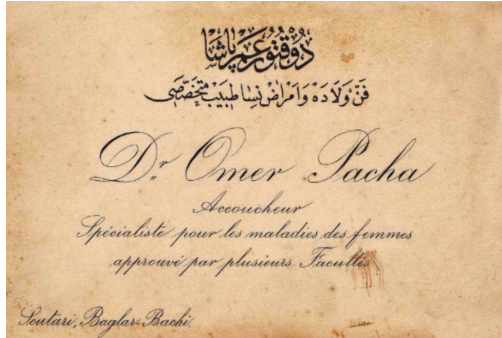 دوقتور عمر پاشا
فن ولاده وامراض نسا طبيب متخصصى
Dr Omer Pacha
Accoucheur
Spécialiste pour les maladies des femmes
approuvé par plusieurs Facultés
Scutari, Baglar-Bachi.